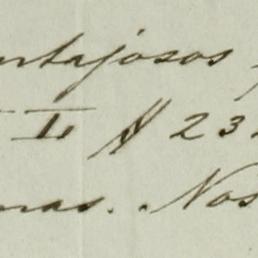 ntajosos
L $ 23
mas. Nos